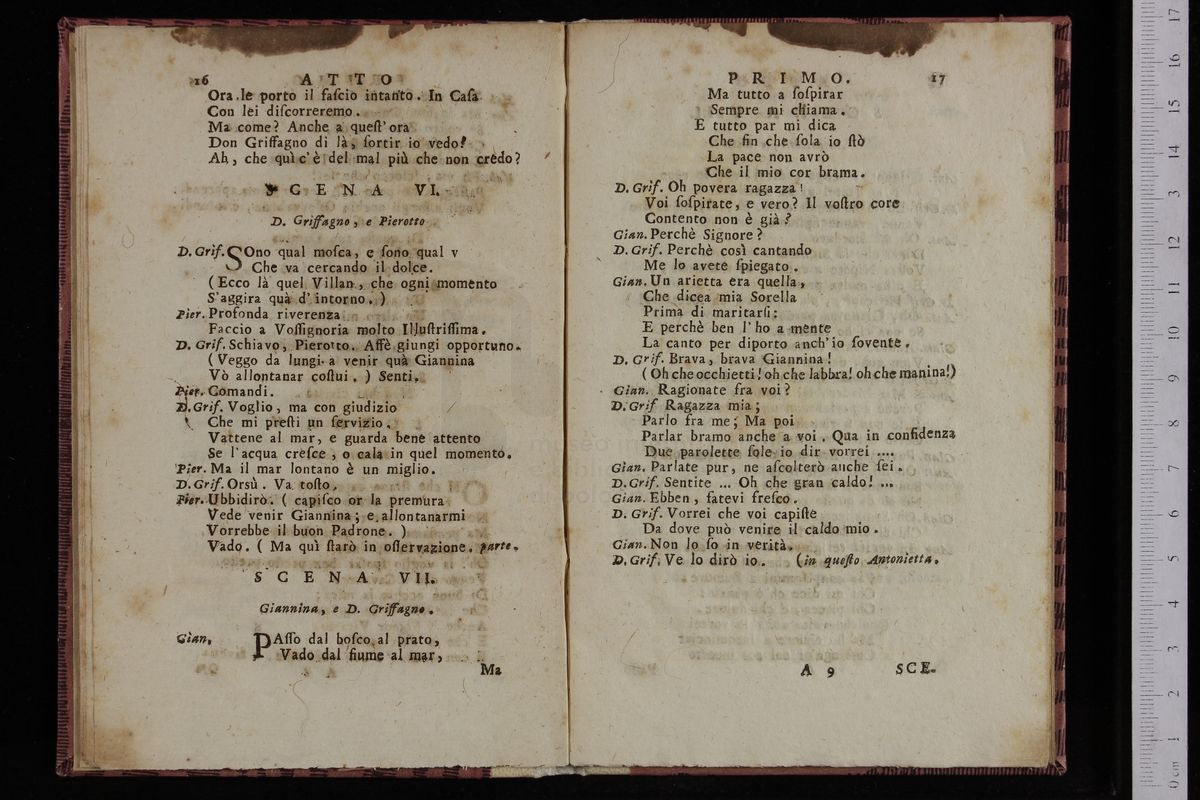 16 ATTO
Ora le porto il faſcio intanto. In Caſa
Con lei diſcorreremo.
Ma come? Anche a queſt'ora
Don Griffagno di là, ſortir io vedo?
Ah, che quì c'è del mal più che non crédo?
SCENA VI.
D. Griffagno, e Pierotto
D. Grif. SOno qual moſca, e ſono qual v
Che va cercando il dolce.
(Ecco là quel Villan, che ogni momento
S'aggira quà d'intorno.)
Pier. Profonda riverenza
Faccio a Voſſignoria molto Illuſtriſſima.
D. Grif. Schiavo, Pierotto. Affè giungi opportuno.
(Veggo da lungi a venir quà Giannina
Vò allontanar coſtui.) Senti.
Pier. Comandi.
D. Grif. Voglio, ma con giudizio
Che mi preſti un ſervizio.
Vattene al mar, e guarda bene attento
Se l'acqua creſce, o cala in quel momento.
Pier. Ma il mar lontano è un miglio.
D. Grif. Orsù. Va toſto.
Pier. Ubbidirò. (capiſco or la premura
Vede venir Giannina; e allontanarmi
Vorrebbe il buon Padrone.)
Vado. (Ma quì ſtarò in oſſervazione. parte.
SCENA VII.
Giannina, e D. Griffagno.
Gian. PAſſo dal boſco al prato,
Vado dal fiume al mar,
Ma
PRIMO. 17
Ma tutto a ſoſpirar
Sempre mi chiama.
E tutto par mi dica
Che fin che ſola io ſtò
La pace non avrò
Che il mio cor brama.
D. Grif. Oh povera ragazza!
Voi ſoſpirate, e vero? Il voſtro core
Contento non è già?
Gian. Perchè Signore?
D. Grif. Perchè così cantando
Me lo avete ſpiegato.
Gian. Un arietta era quella,
Che dicea mia Sorella
Prima di maritarſi:
E perchè ben l'ho a mente
La canto per diporto anch'io ſovente.
D. Grif. Brava, brava Giannina!
(Oh che occhietti! oh che labbra! oh che manina!)
Gian. Ragionate fra voi?
D. Grif Ragazza mia;
Parlo fra me; Ma poi
Parlar bramo anche a voi. Qua in confidenza
Due parolette ſole io dir vorrei ....
Gian. Parlate pur, ne aſcolterò anche ſei.
D. Grif. Sentite ... Oh che gran caldo! ...
Gian. Ebben, fatevi freſco.
D. Grif. Vorrei che voi capiſte
Da dove può venire il caldo mio.
Gian. Non lo ſo in verità.
D. Grif. Ve lo dirò io. (in queſto Antonietta.
A 9 SCE-